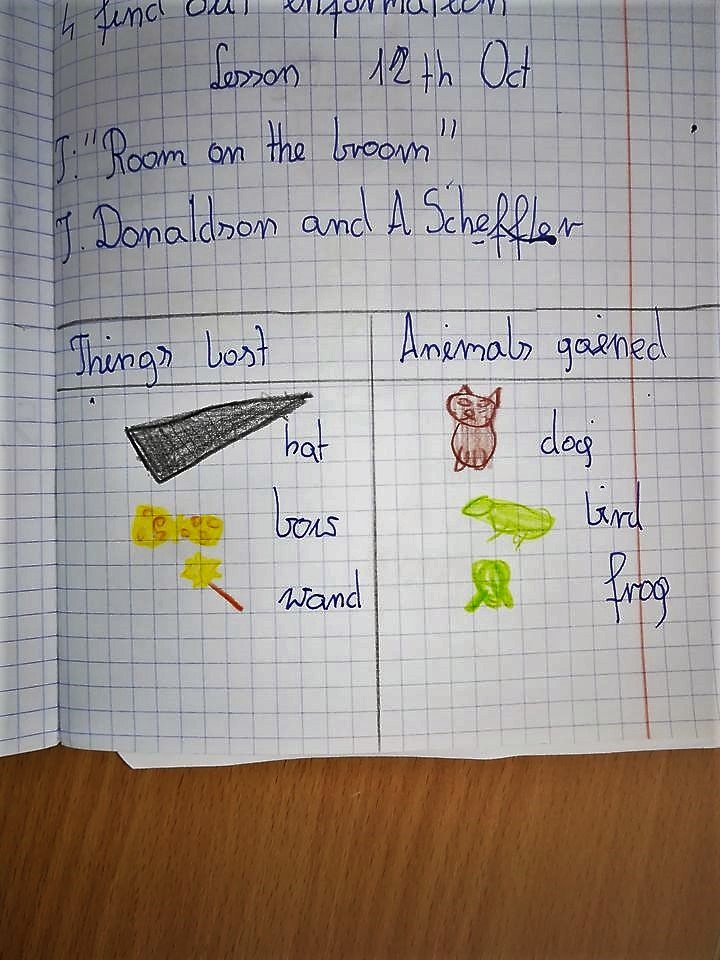 ↳ find out information
Lesson 12th Oct
T: "Room on the broom"
J. Donaldson and A Scheffler
Things lost
Animals gained
hat
dog
bow
bird
wand
frog